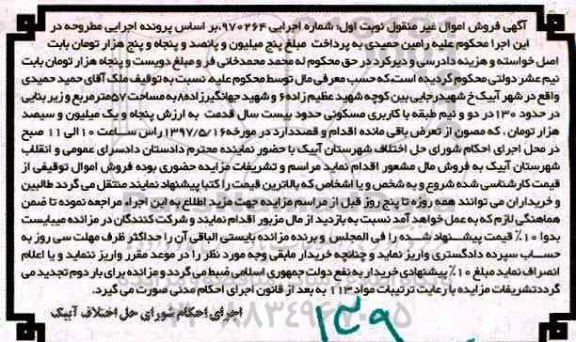 آگهی فروش اموال غیر منقول نوبت اول، شماره اجرایی ۹۷۰۲۶۴. بر اساس پرونده اجرایی مطروحه در
این اجرا محکوم علیه رامین حمیدی به پرداخت مبلغ پنج میلیون و پانصد و پنجاه و پنج هزار تومان بابت
اصل خواسته و هزینه دادرسی و دیرکرد در حق محکوم له محمد محمدخانی فر و مبلغ دویست و پنجاه هزار تومان بابت
نیم عشر دولتی محکوم گردیده است،که حسب معرفی مال توسط محکوم علیه نسبت به توقیف ملک آقای حمید حمیدی
واقع در شهر آبیک خ شهیدرجایی بین کوچه شهید عظیم زاده۶ و شهید جهانگیرزاده۸ به مساحت ۵۷مترمربع و زیربنایی
در حدود ۱۳۰ در دو و نیم طبقه با کاربری مسکونی حدود بیست سال قدمت به ارزش پنجاه و یک میلیون و سیصد
هزار تومان ، که مصون از تعرض باقی مانده اقدام و قصددارد در مورخه ۱۳۹۷/۵/۱۶ راس ساعت ۱۰ الی ۱۱ صبح
در محل اجرای احکام شورای حل اختلاف شهرستان آبیک با حضور نماینده محترم دادستان دادسرای عمومی و انقلاب
شهرستان آبیک به فروش مال مشعور اقدام نماید مراسم و تشریفات مزایده حضوری بوده فروش اموال توقیفی از
قیمت کارشناسی شده شروع و به شخص و یا اشخاص که بالاترین قیمت را کتبا پیشنهاد نمایند منتقل می گردد طالبین
و خریداران می توانند همه روزه تا پنج روز قبل از مراسم مزایده جهت مزید اطلاع به این اجراء مراجعه نموده تا ضمن
هماهنگی لازم که به عمل خواهد آمد نسبت به بازدید از مال مزبور اقدام نمایند و شرکت کنندگان در مزایده میبایست
بدوا ۱۰٪ قیمت پیشنهاد شده را فی المجلس و برنده مزایده بایستی الباقی آن را حداکثر ظرف مهلت سی روز به
حساب سپرده دادگستری واریز نماید و چنانچه خریدار مابقی وجه مورد نظر را در موعد مقرر واریز ننماید و یا اعلام
انصراف نماید مبلغ ۱۰٪ پیشنهادی خریدار به نفع دولت جمهوری اسلامی ضبط می گردد و مزایده برای بار دوم تجدید می
گرددتشریفات مزایده با رعایت ترتیبات مواد ۱۱۳ به بعد از قانون اجرای احکام مدنی صورت می گیرد.
اجرای احکام شورای حل اختلاف آبیک
۱۳۹